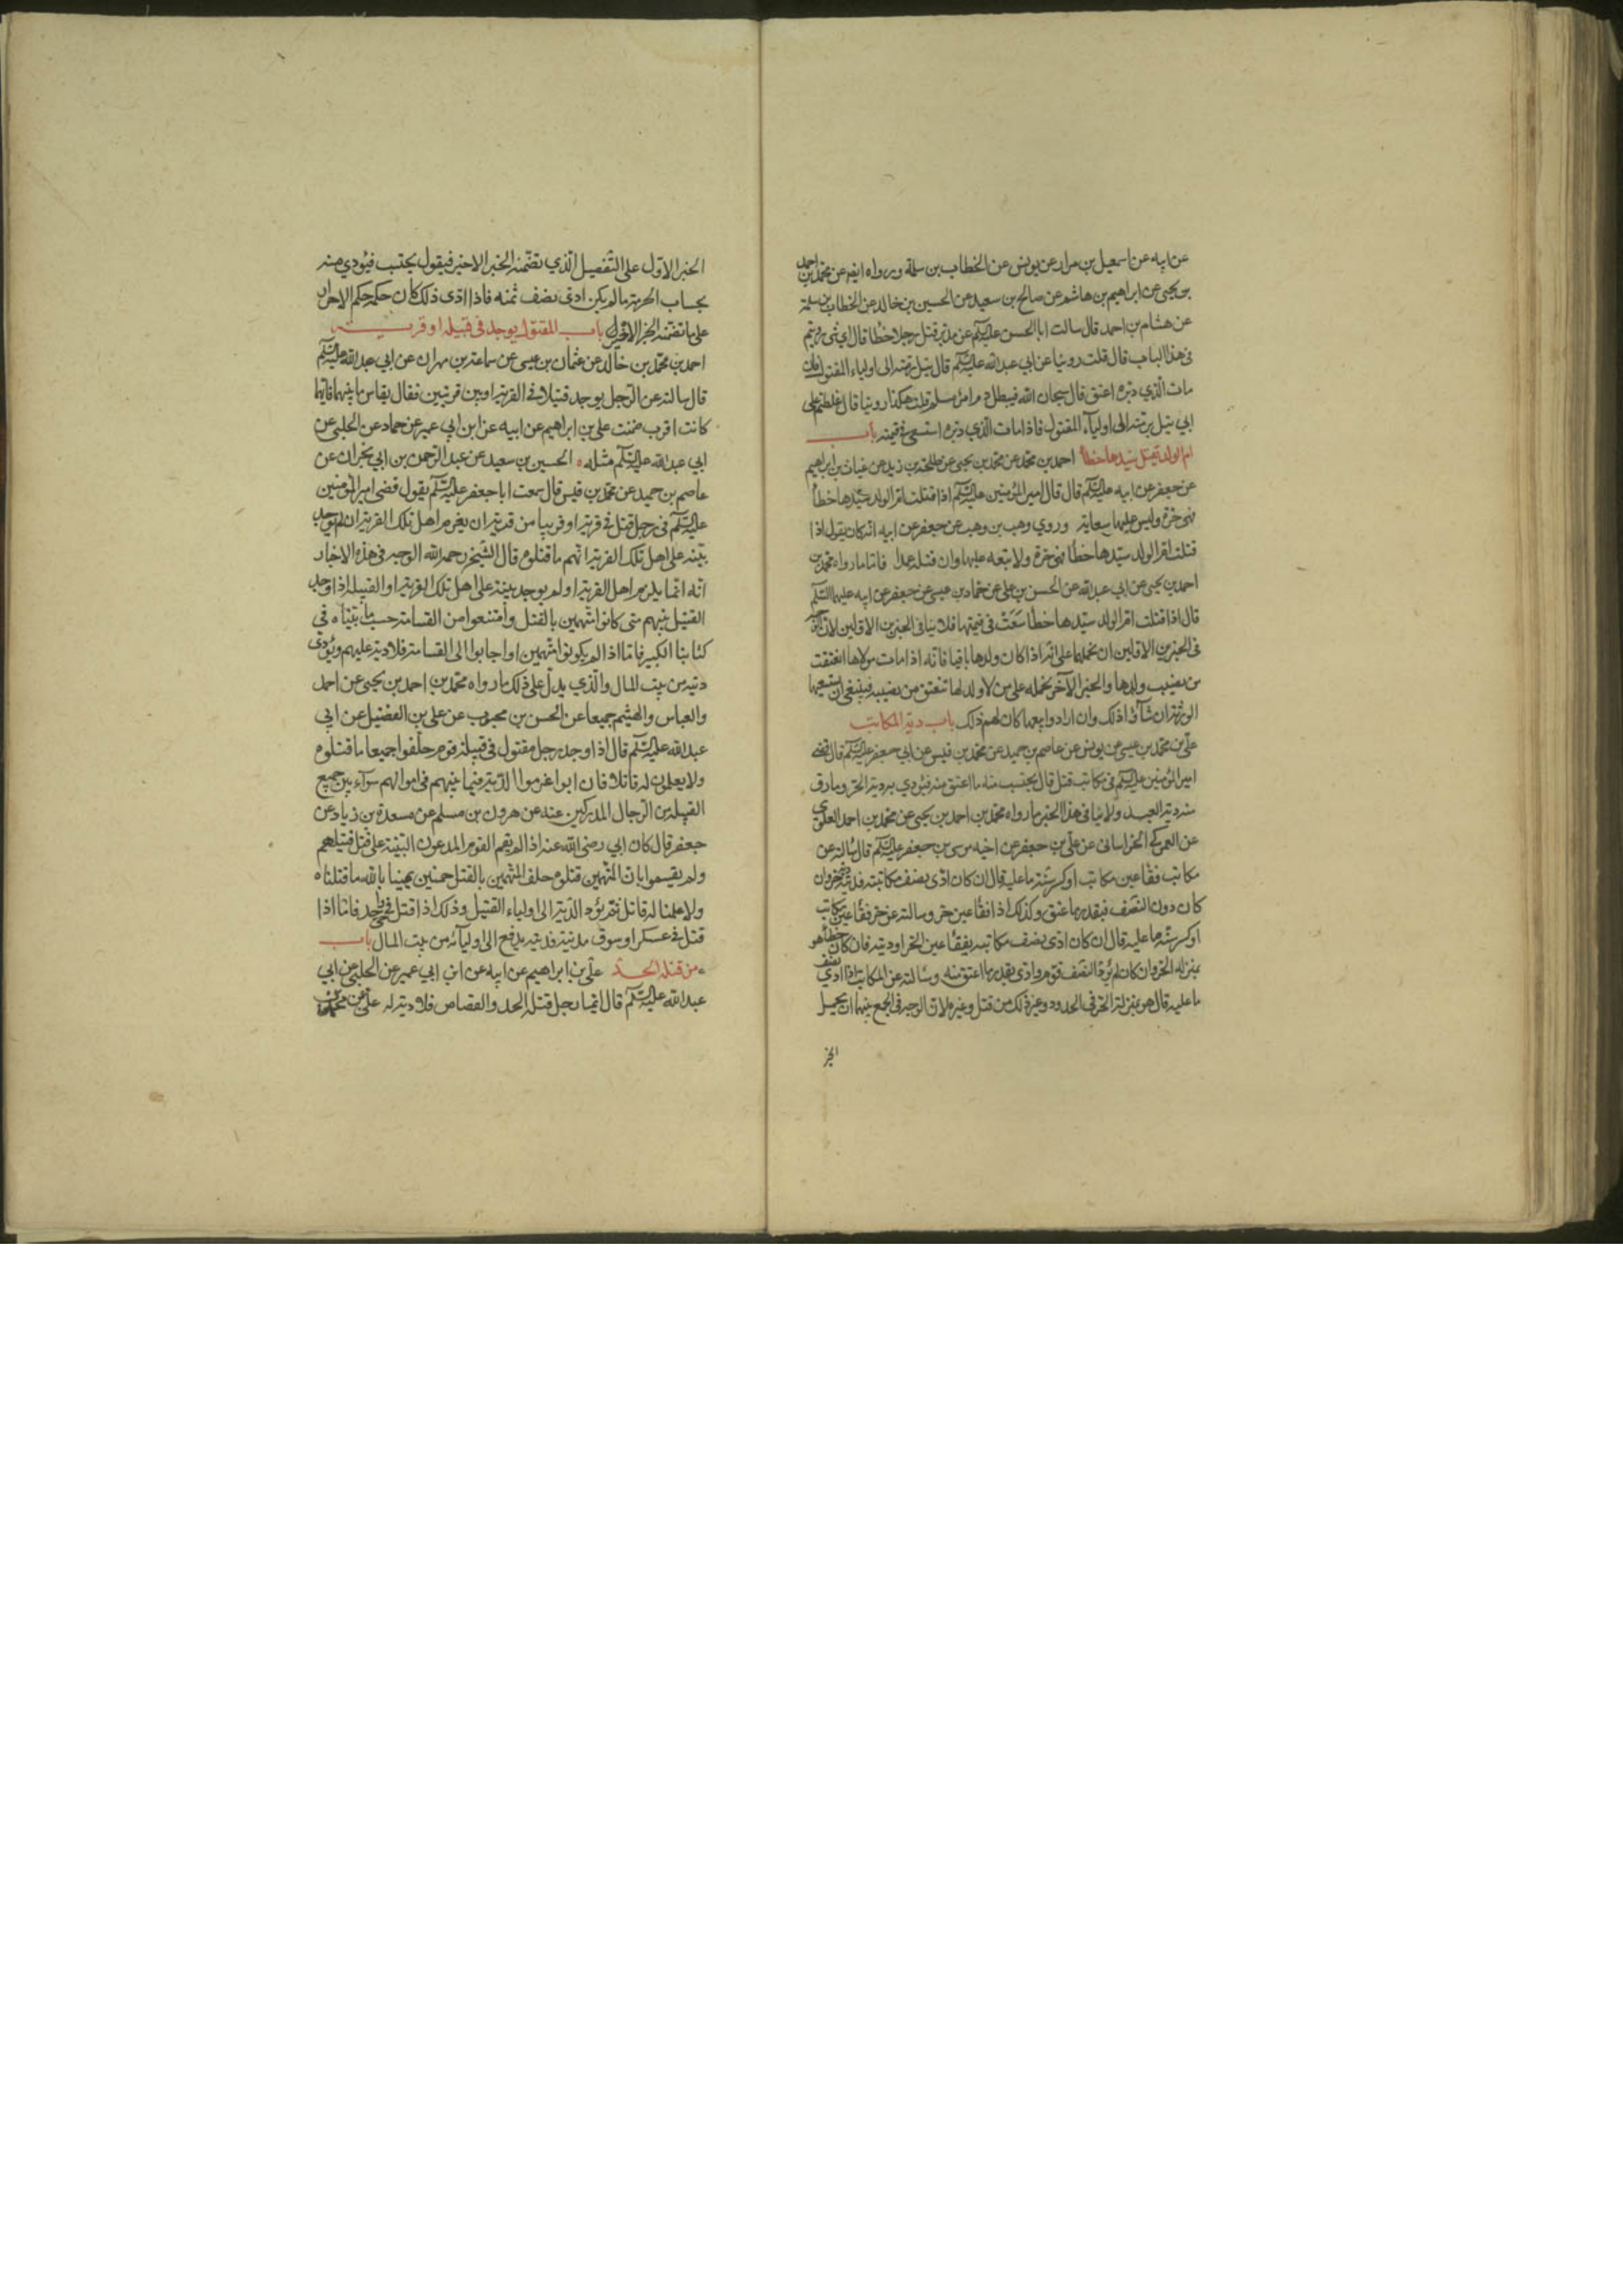 عن ابيه عن اسمعيل بن مرار عن يونس عن الخطاب بن سلمة ورواه ايضا عن محمد بن احمد
بن يحيى عن ابراهيم بن هاشم عن صالح بن سعيد عن الحسين بن خالد عن الخطاب بن سلمة
عن هشام بن احمد قال سالت ابا الحسن عليه السلم عن مدبر قتل رجلا خطأ قال اي شئ رويتم
في هذا الباب قال قلت روينا عن ابي عبد الله عليه السلم قال يتل برمته الى اولياء المقتول فان
مات الذي دبره اعتق قال سبحان الله فيبطل دم امرئ مسلم قلت هكذا روينا قال غلطتم على
ابي يتل برمته الى اولياء المقتول فاذا مات الذي دبره استسعى في قيمته باب
ام الولد تقتل سيدها خطأ احمد بن محمد عن محمد بن يحيى عن طلحة بن زيد عن غياث بن ابراهيم
عن جعفر عن ابيه عليه السلم قال قال امير المؤمنين عليه السلم اذا قتلت ام الولد سيدها خطأ
فهي حرة وليس عليها سعاية وروي وهب بن وهب عن جعفر عن ابيه انه كان يقول اذا
قتلت ام الولد سيدها خطأ فهي حرة ولا تبعه عليها وان قتلته عمدا فاما ما رواه محمد بن
احمد بن يحيى عن ابي عبد الله عن الحسن بن علي عن حماد بن عيسى عن جعفر عن ابيه عليهما السلم
قال اذا قتلت ام الولد سيدها خطأ سعت في قيمتها فلا ينافي الخبرين الاولين لان
في الخبرين الاولين ان نحملها على انه اذا كان ولدها باقيا فانه اذا مات مولاها انعتقت
من نصيب ولدها والخبر الآخر نحمله على من لا ولد لها تنعتق من نصيبه فينبغي ان يستسعيها
الورثة ان شاؤا ذلك وان ارادوا بيعها كان لهم ذلك باب دية المكاتب
علي بن محمد بن عيسى عن يونس عن عاصم بن حميد عن محمد بن قيس عن ابي جعفر عليه السلم قال قضى
امير المؤمنين عليه السلم في مكاتب قتل قال يحتسب منه ما اعتق منه فيؤدي به دية الحر وما رق
منه دية العبد ولا ينافي هذا الخبر ما رواه محمد بن احمد بن يحيى عن محمد بن احمد العلوي
عن العمركي الخراساني عن علي بن جعفر عن اخيه موسى بن جعفر عليه السلم قال سالته عن
مكاتب فقأ عين مكاتب او كسر سنه ما عليه قال ان كان ادى نصف مكاتبته فديته دية حر وان
كان دون النصف فبقدر ما عتق وكذلك اذا فقأ عين حر وسالته عن حر فقأ عين مكاتب
او كسر سنه ما عليه قال ان كان ادى نصف مكاتبه يفقأ عين الحر او ديته فان كان خطأ هو
بمنزلة الحر وان كان لم يؤد النصف قوم وادى بقدر ما اعتق منه وسالته عن المكاتب اذا ادى نصف
ما عليه قال هو بمنزلة الحر في الحدود وغير ذلك من قتل وغيره لان الوجه في الجمع بينهما ان يحمل
الخبر
الخبر الاول على التفصيل الذي تضمنه الخبر الاخير فيقول يحتسب فيؤدي منه
بحساب الحرية ما لم يكن ادى نصف ثمنه فاذا ادى ذلك كان حكمه حكم الاحرار
على ما تضمنه الخبر الاخير باب المقتول يوجد في قبيلة او قرية
احمد بن محمد بن خالد عن عثمان بن عيسى عن سماعة بن مهران عن ابي عبد الله عليه السلم
قال سالته عن الرجل يوجد قتيلا في القرية او بين قريتين فقال يقاس ما بينهما فايهما
كانت اقرب ضمنت علي بن ابراهيم عن ابيه عن ابن ابي عمير عن حماد عن الحلبي عن
ابي عبد الله عليه السلم مثله الحسين بن سعيد عن عبد الرحمن بن ابي نجران عن
عاصم بن حميد عن محمد بن قيس قال سمعت ابا جعفر عليه السلم يقول قضى امير المؤمنين
عليه السلم في رجل قتل في قرية او قريبا من قرية ان يغرم اهل تلك القرية ان لم توجد
بينة على اهل تلك القرية انهم ما قتلوه قال الشيخ رحمه الله الوجه في هذه الاخبار
انه انما يلزم اهل القرية او لم يوجد بينة على اهل تلك القرية او القبيلة اذا وجد
القتيل بينهم متى كانوا متهمين بالقتل وامتنعوا من القسامة حسب ما بيناه في
كتابنا الكبير فاما اذا لم يكونوا متهمين او اجابوا الى القسامة فلا دية عليهم ويؤدى
ديته من بيت المال والذي يدل على ذلك ما رواه محمد بن احمد بن يحيى عن احمد
والعباس والهيثم جميعا عن الحسن بن محبوب عن علي بن الفضيل عن ابي
عبد الله عليه السلم قال اذا وجد رجل مقتول في قبيلة قوم حلفوا جميعا ما قتلوه
ولا يعلمون له قاتلا فان ابوا غرموا الدية فيما بينهم في اموالهم سواء بين جميع
القبيلة من الرجال المدركين عنه عن هرون بن مسلم عن مسعدة بن زياد عن
جعفر قال كان ابي رضي الله عنه اذا لم يقم القوم المدعون البينة على قتل قتيلهم
ولم يقسموا بان المتهمين قتلوه حلف المتهمين بالقتل خمسين يمينا بالله ما قتلناه
ولا علمنا له قاتل ثم يؤد الدية الى اولياء القتيل وذلك اذا قتل في حي واحد فاما اذا
قتل في عسكر او سوق مدينة فديته يدفع الى اوليائه من بيت المال باب
من قتله الحد علي بن ابراهيم عن ابيه عن ابن ابي عمير عن الحلبي عن ابي
عبد الله عليه السلم قال ايما رجل قتله الحد والقصاص فلا دية له علي عن محمد